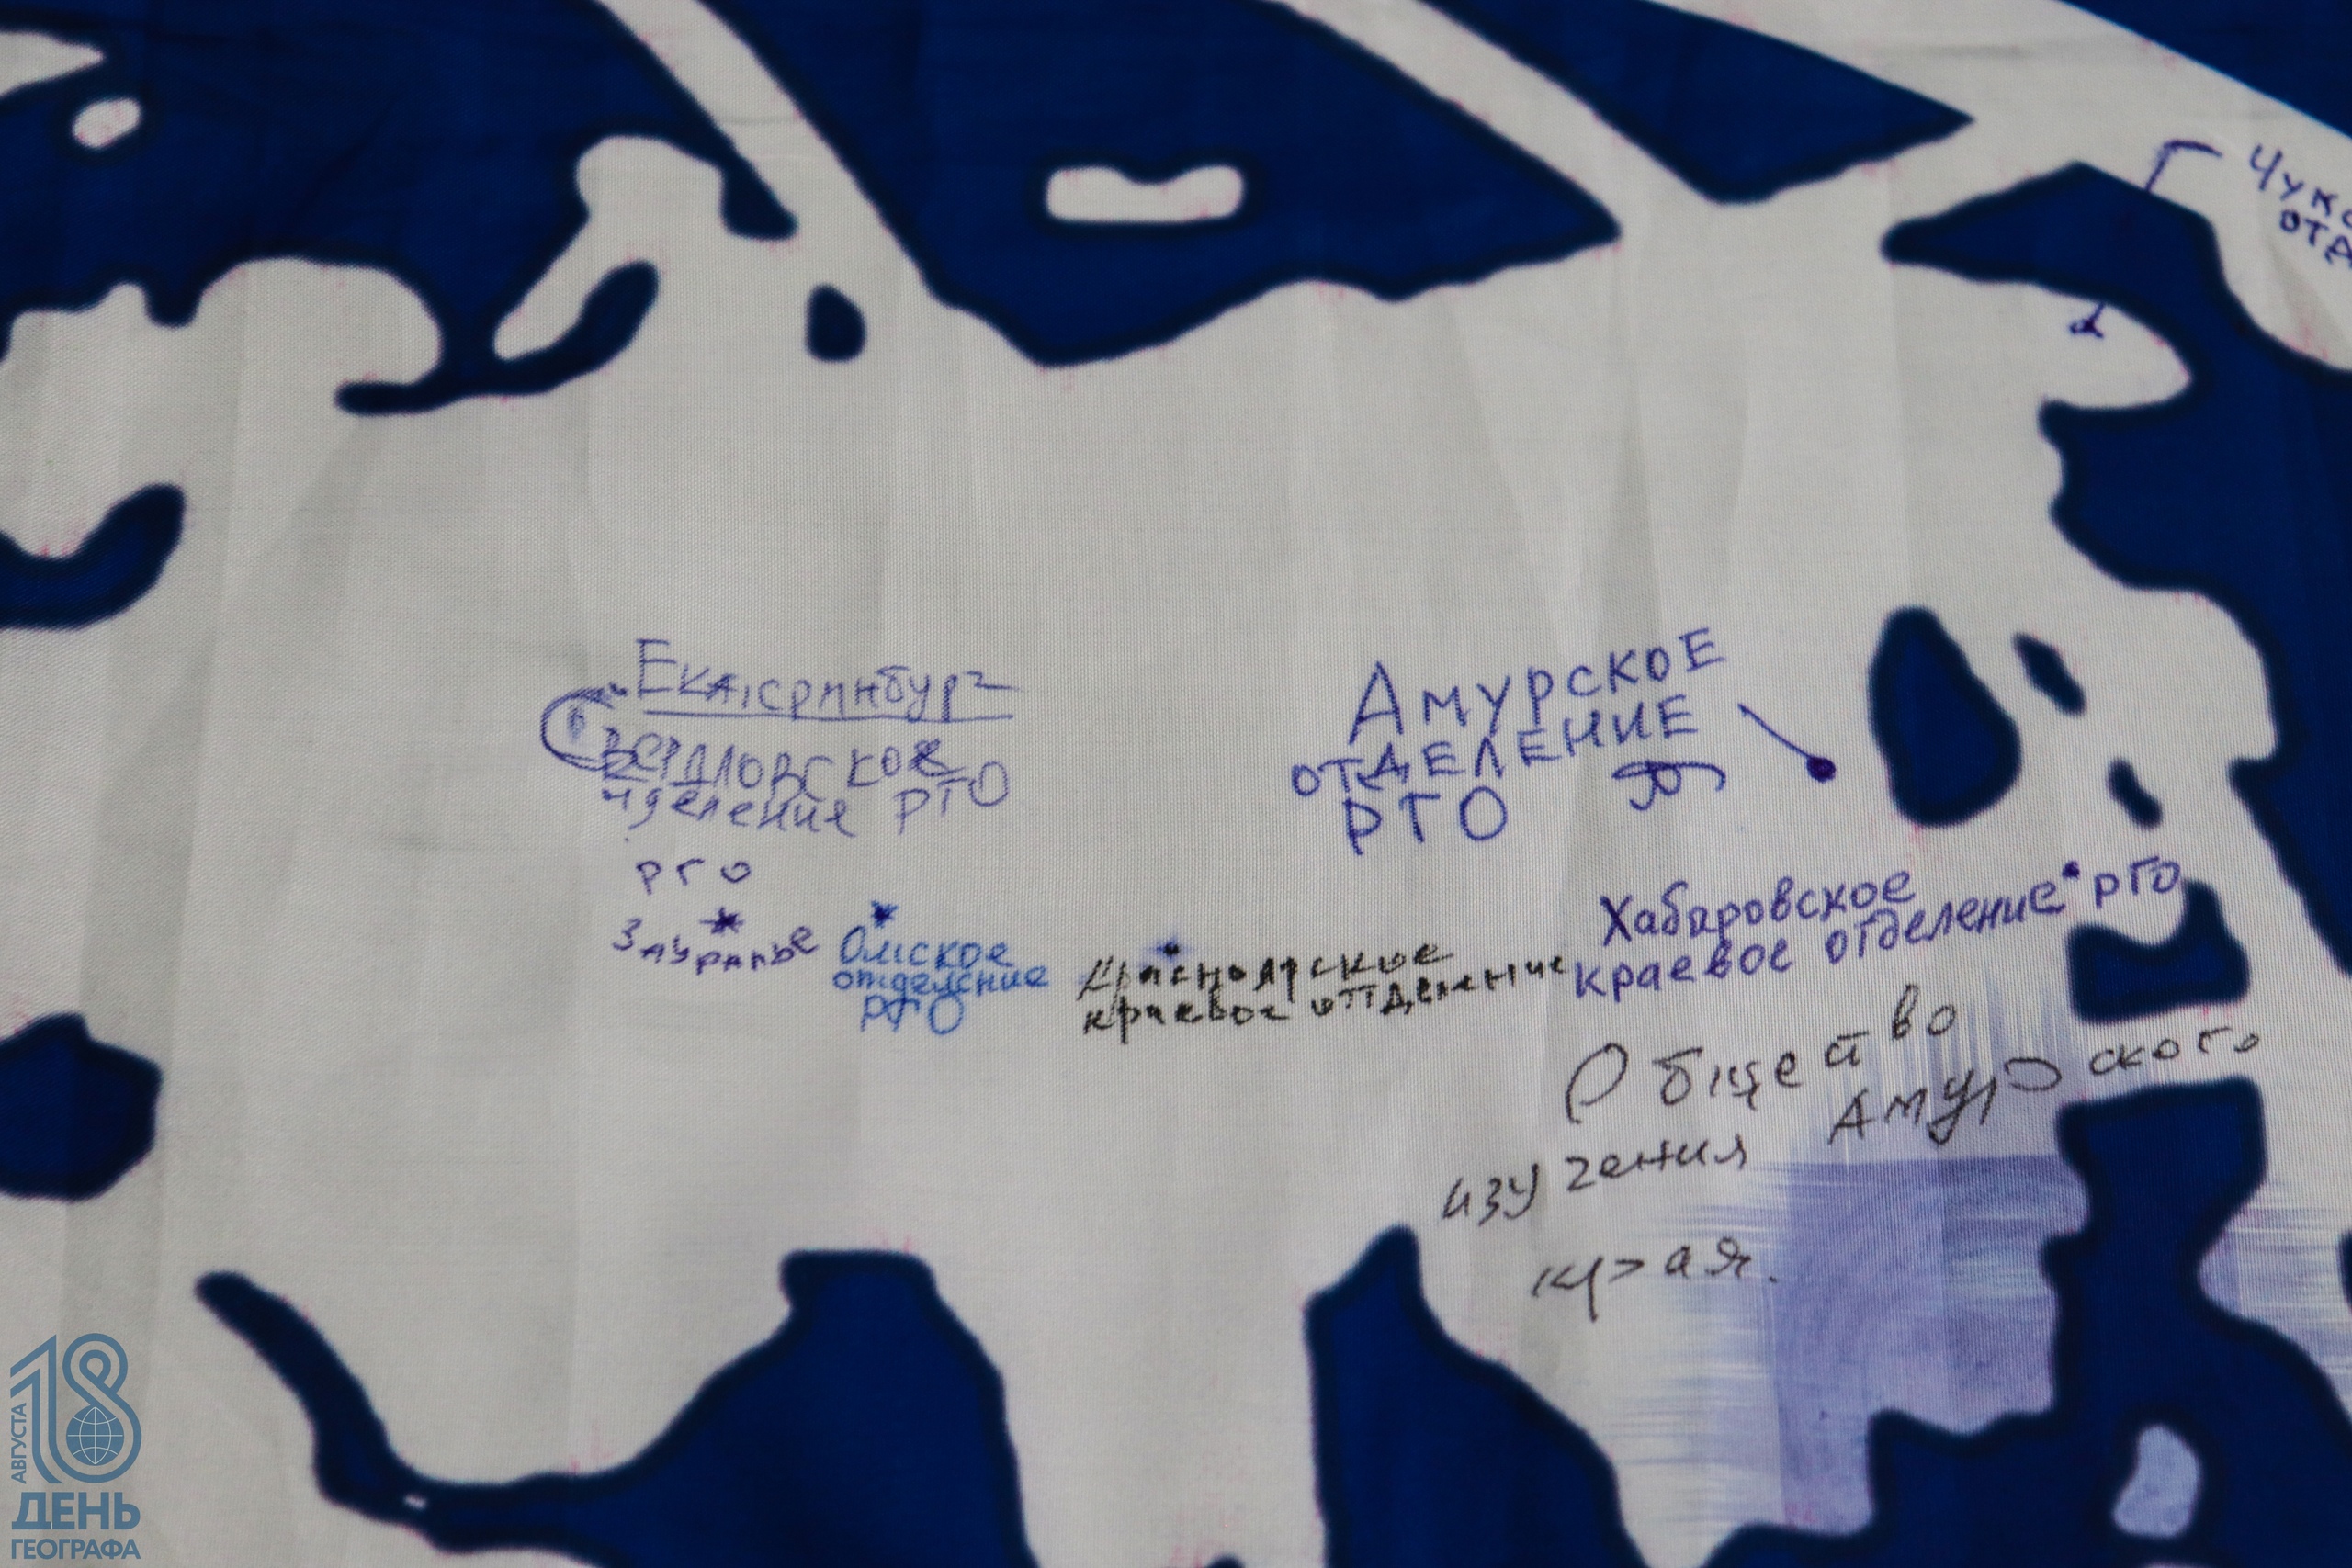 Чук
отд
Екатеринбург
Свердловское
отделение РГО
РГО
Зауралье
Омское
отделение
РГО
Красноярское
краевое отделение
Амурское
отделение
РГО
Хабаровское
краевое отделение РГО
Общество
изучения Амурского
края.
18
АВГУСТА
ДЕНЬ
ГЕОГРАФА